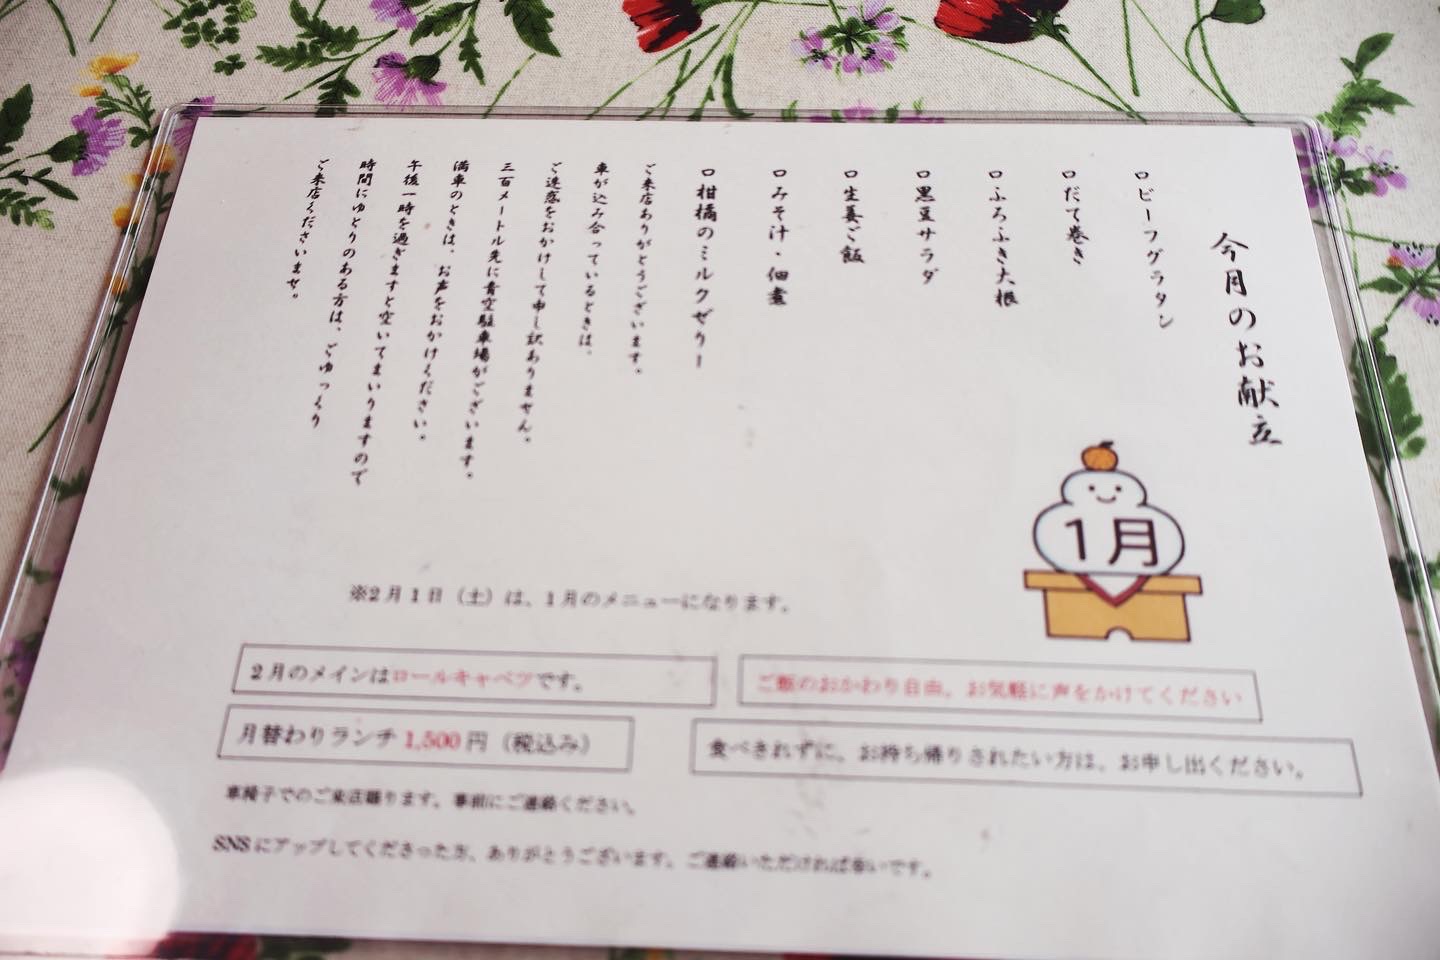 今月のお献立
ロビーフグラタン
ロだて巻き
ロふろふき大根
ロ黒豆サラダ
ロ生姜ご飯
ロみそ汁・佃煮
ロ柑橘のミルクゼリー
ご来店ありがとうございます。
車が込み合っているときは、
ご迷惑をおかけして申し訳ありません。
三百メートル先に青空駐車場がございます。
満車のときは、お声をおかけください。
午後一時を過ぎますと空いてまいりますので
時間にゆとりのある方は、ごゆっくり
ご来店くださいませ。
1月
※2月1日（土）は、1月のメニューになります。
2月のメインはロールキャベツです。
ご飯のおかわり自由。お気軽に声をかけてください
月替わりランチ 1,500 円（税込み）
食べきれずに、お持ち帰りされたい方は、お申し出ください。
車椅子でのご来店賜ります。事前にご連絡ください。
SNSにアップしてくださった方、ありがとうございます。ご連絡いただければ幸いです。